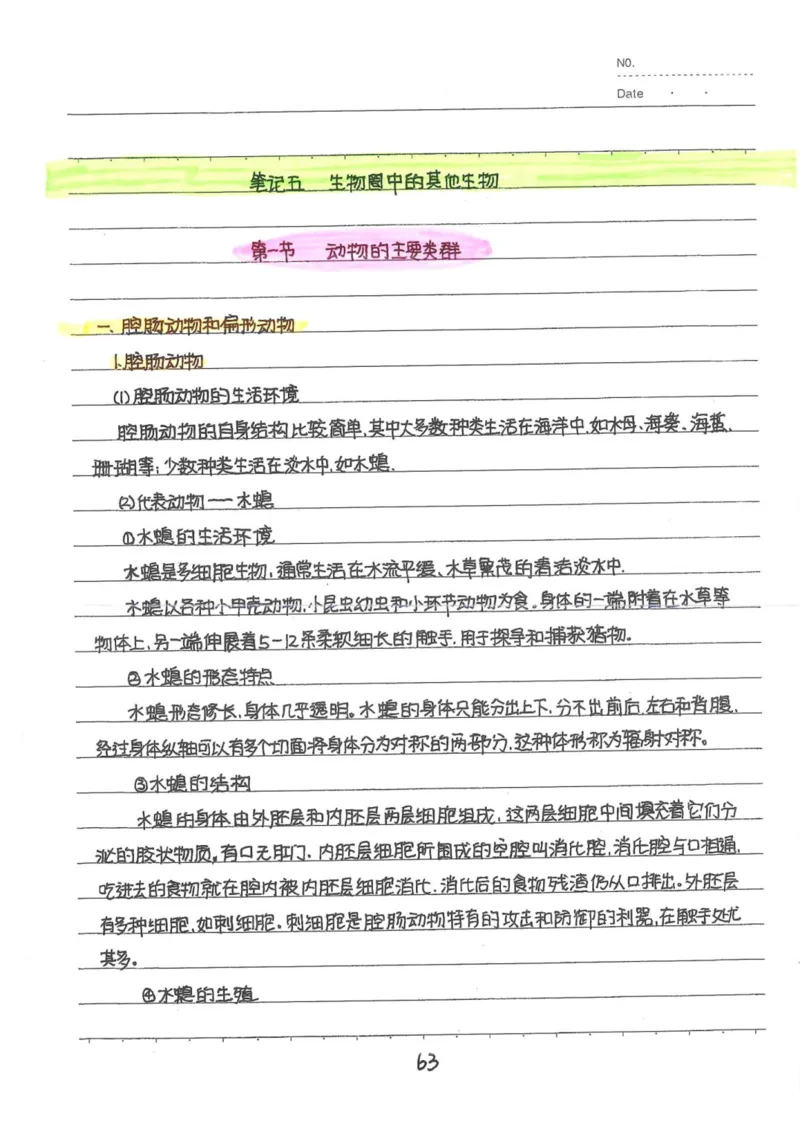 NO.
Date
笔记五 生物圈中的其他生物
第一节 动物的主要类群
一、腔肠动物和扁形动物
1.腔肠动物
(1)腔肠动物的生活环境
腔肠动物的自身结构比较简单,其中大多数种类生活在海洋中,如水母、海葵、海蜇、
珊瑚等;少数种类生活在淡水中,如水螅.
(2)代表动物——水螅
①水螅的生活环境
水螅是多细胞生物,通常生活在水流平缓、水草繁茂的清洁淡水中.
水螅以各种小甲壳动物,小昆虫幼虫和小环节动物为食。身体的一端附着在水草等
物体上,另一端伸展着5-12条柔软细长的触手,用于探寻和捕获猎物。
②水螅的形态特点
水螅形态修长,身体几乎透明。水螅的身体只能分出上下,分不出前后、左右和背腹,
经过身体纵轴可以有多个切面将身体分为对称的两部分,这种体形称为辐射对称。
③水螅的结构
水螅的身体由外胚层和内胚层两层细胞组成,这两层细胞中间填充着它们分
泌的胶状物质,有口无肛门.内胚层细胞所围成的空腔叫消化腔,消化腔与口相通,
吃进去的食物就在腔内被内胚层细胞消化.消化后的食物残渣仍从口排出。外胚层
有多种细胞,如刺细胞。刺细胞是腔肠动物特有的攻击和防御的利器,在触手处尤
其多。
④水螅的生殖
63